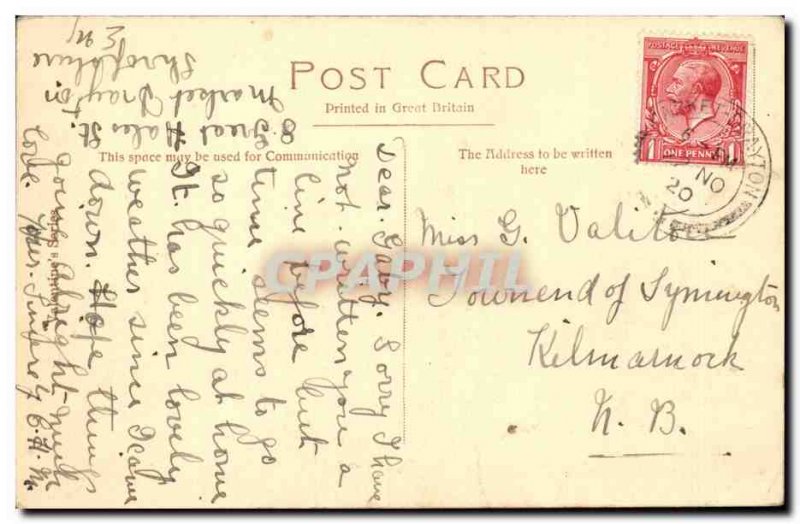 POST CARD
Printed in Great Britain
This space may be used for Communication
The Address to be written
here
8 Great Hales St.
Market Drayton
Shropshire
Dear Gaby. Sorry I have
not written you a
line before but
time seems to go
so quickly at home
It has been lovely
weather since I came
down. Hope things
going alright. Much
love. Yours Sincerely E.H.M.
Miss G. Valite
Townend of Symington
Kilmarnock
N. B.
POSTAGE REVENUE
1 ONE PENNY 1
MARKET DRAYTON
NO
20
Series
CPAPHIL